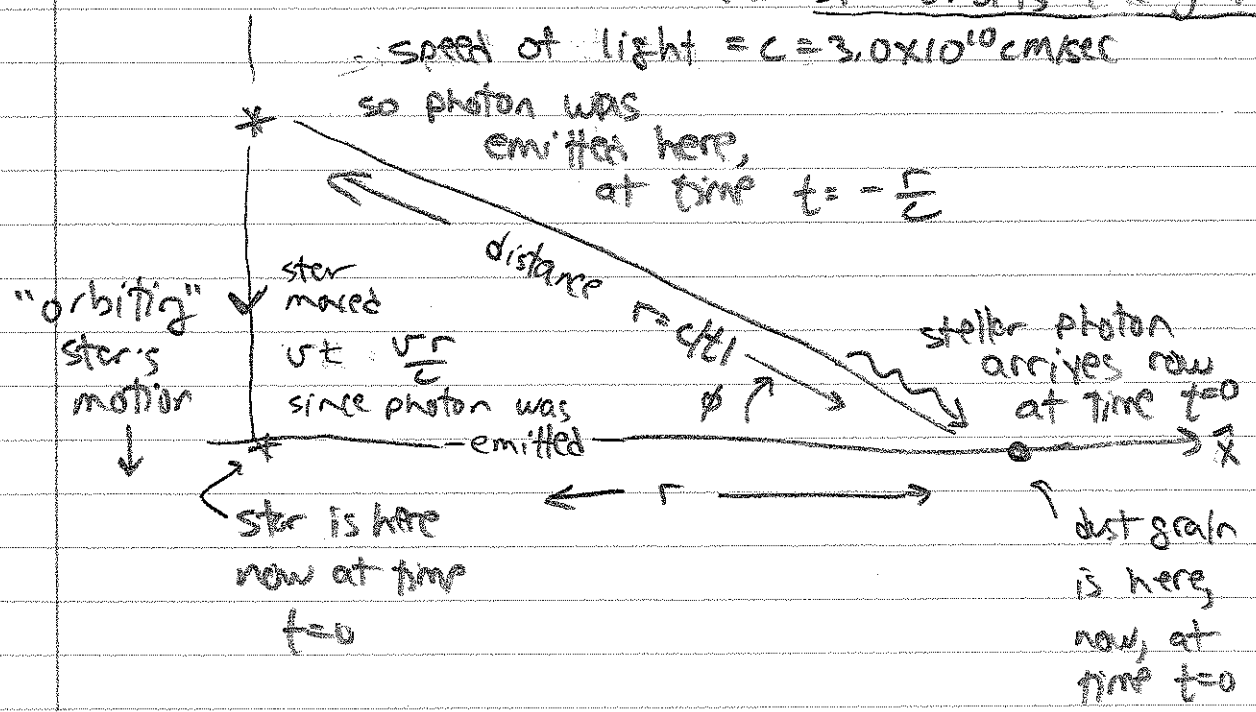 speed of light = c = 3.0x10¹⁰ cm/sec
so photon was
emitted here,
at time t = - r/c
distance r = c|t|
"orbiting"
star's
motion
star
moved
vt vr/c
since photon was
emitted
φ
stellar photon
arrives now
at time t=0
x̂
r
star is here
now at time
t=0
dust grain
is here,
now, at
time t=0